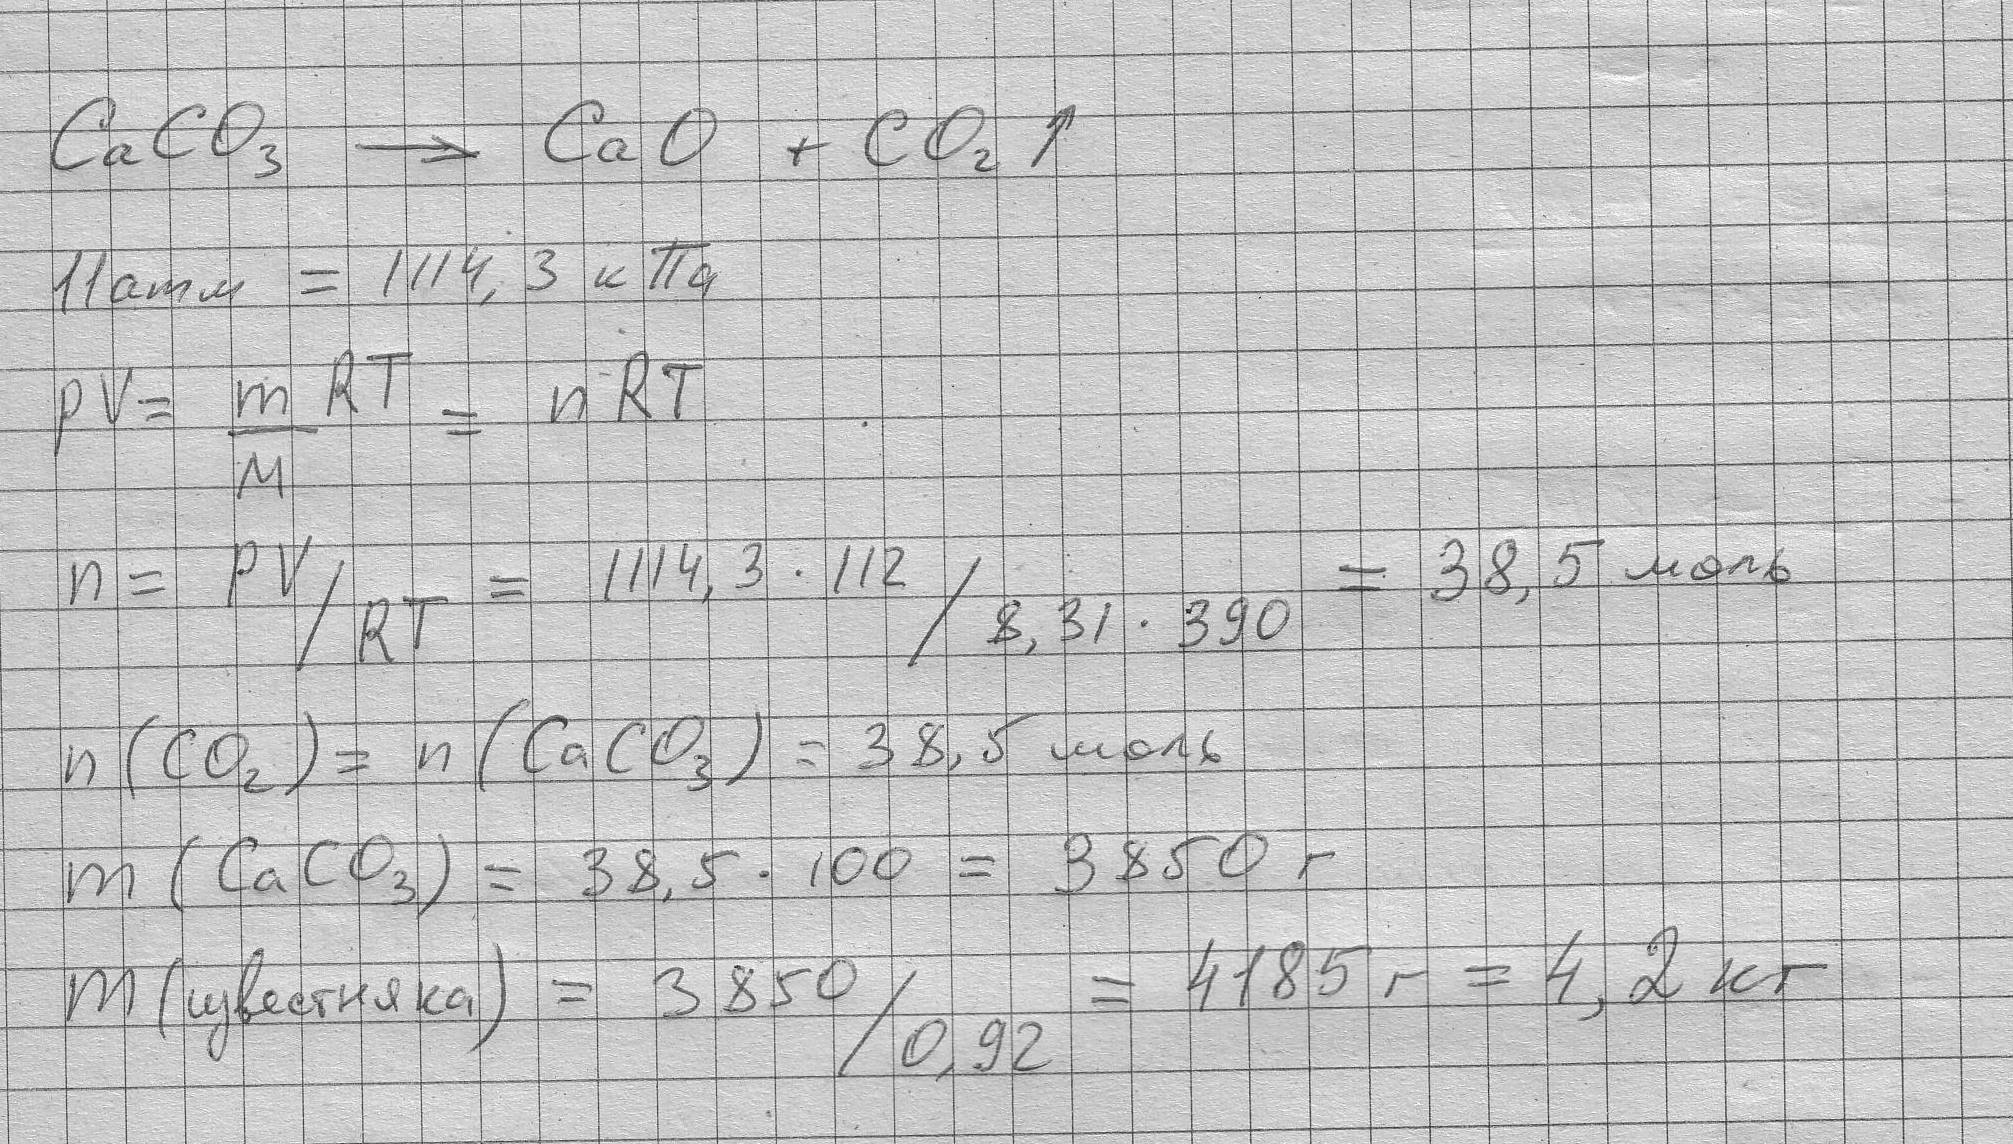 CaCO₃ → CaO + CO₂↑
11атм = 1114,3 кПа
pV = m/M RT = nRT
n = PV/RT = 1114,3 · 112 / 8,31 · 390 = 38,5 моль
n(CO₂) = n(CaCO₃) = 38,5 моль
m(CaCO₃) = 38,5 · 100 = 3850 г
m(известняка) = 3850/0,92 = 4185 г = 4,2 кг